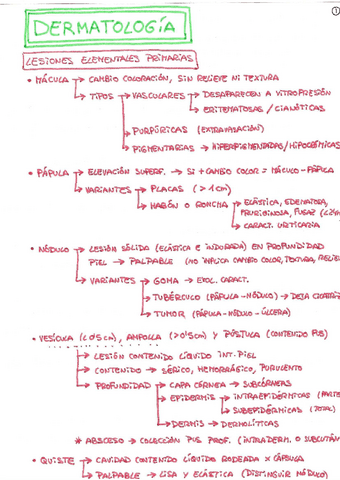 1
DERMATOLOGÍA
LESIONES ELEMENTALES PRIMARIAS
• MÁCULA → CAMBIO COLORACIÓN, SIN RELIEVE NI TEXTURA
→ TIPOS → VASCULARES → DESAPARECEN A VITROPRESIÓN
→ ERITEMATOSAS / CIANÓTICAS
→ PURPÚRICAS (EXTRAVASACIÓN)
→ PIGMENTARIAS → HIPERPIGMENTADAS/HIPOCRÓMICAS
• PÁPULA → ELEVACIÓN SUPERF. → SI + CAMBIO COLOR = MÁCULO-PÁPULA
→ VARIANTES → PLACAS (>1cm)
→ HABÓN O RONCHA → ELÁSTICA, EDEMATOSA,
PRURIGINOSA, FUGAZ (<24h
→ CARACT. URTICARIA
• NÓDULO → LESIÓN SÓLIDA (ELÁSTICA E INDURADA) EN PROFUNDIDAD
PIEL → PALPABLE (NO IMPLICA CAMBIO COLOR, TEXTURA, RELIE
→ VARIANTES → GOMA → EVOL. CARACT.
→ TUBÉRCULO (PÁPULA-NÓDULO) → DEJA CICATRIZ
→ TUMOR (PÁPULA-NÓDULO-ÚLCERA)
• VESÍCULA (<0'5cm), AMPOLLA (>0'5cm) Y PÚSTULA (CONTENIDO PUS)
→ LESIÓN CONTENIDO LÍQUIDO INT. PIEL
→ CONTENIDO → SÉRICO, HEMORRÁGICO, PURULENTO
→ PROFUNDIDAD → CAPA CÓRNEA → SUBCÓRNEAS
→ EPIDERMIS → INTRAEPIDÉRMICAS (PARTE
→ SUBEPIDÉRMICAS (TOTAL)
→ DERMIS → DERMOLÍTICAS
* ABSCESO → COLECCIÓN PUS PROF. (INTRADERM. O SUBCUTÁN
• QUISTE → CAVIDAD CONTENIDO LÍQUIDO RODEADA X CÁPSULA
→ PALPABLE → LISA Y ELÁSTICA (DISTINGUIR NÓDULO)